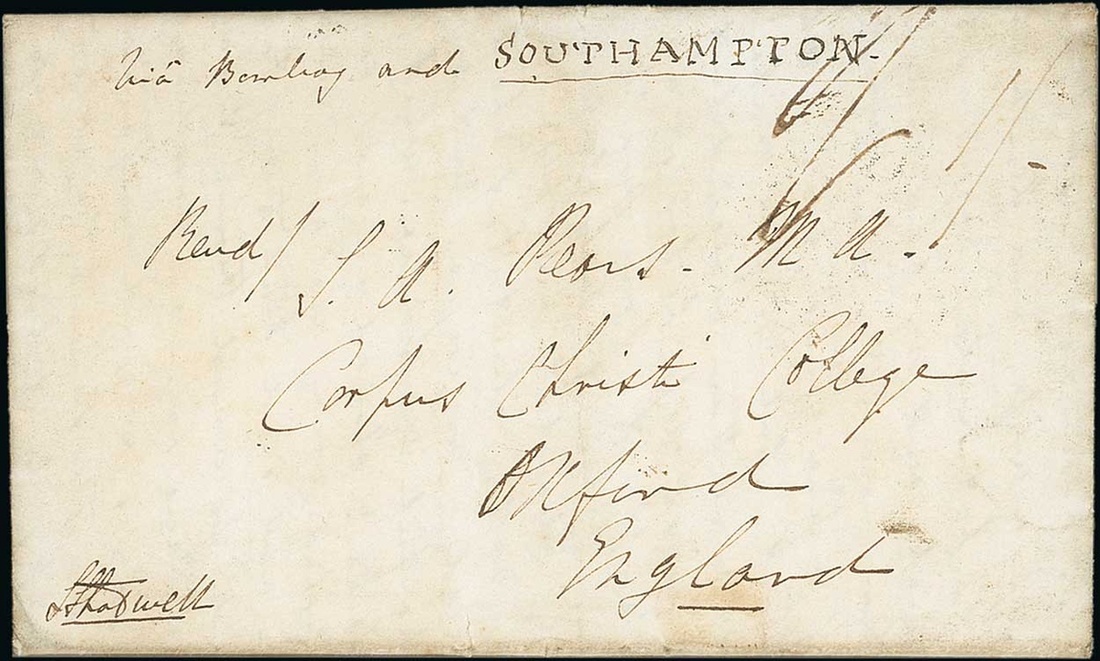 Viâ Bombay and SOUTHAMPTON.
Revd/ S. A. Pears. M A.
Corpus Christi College
Oxford
England